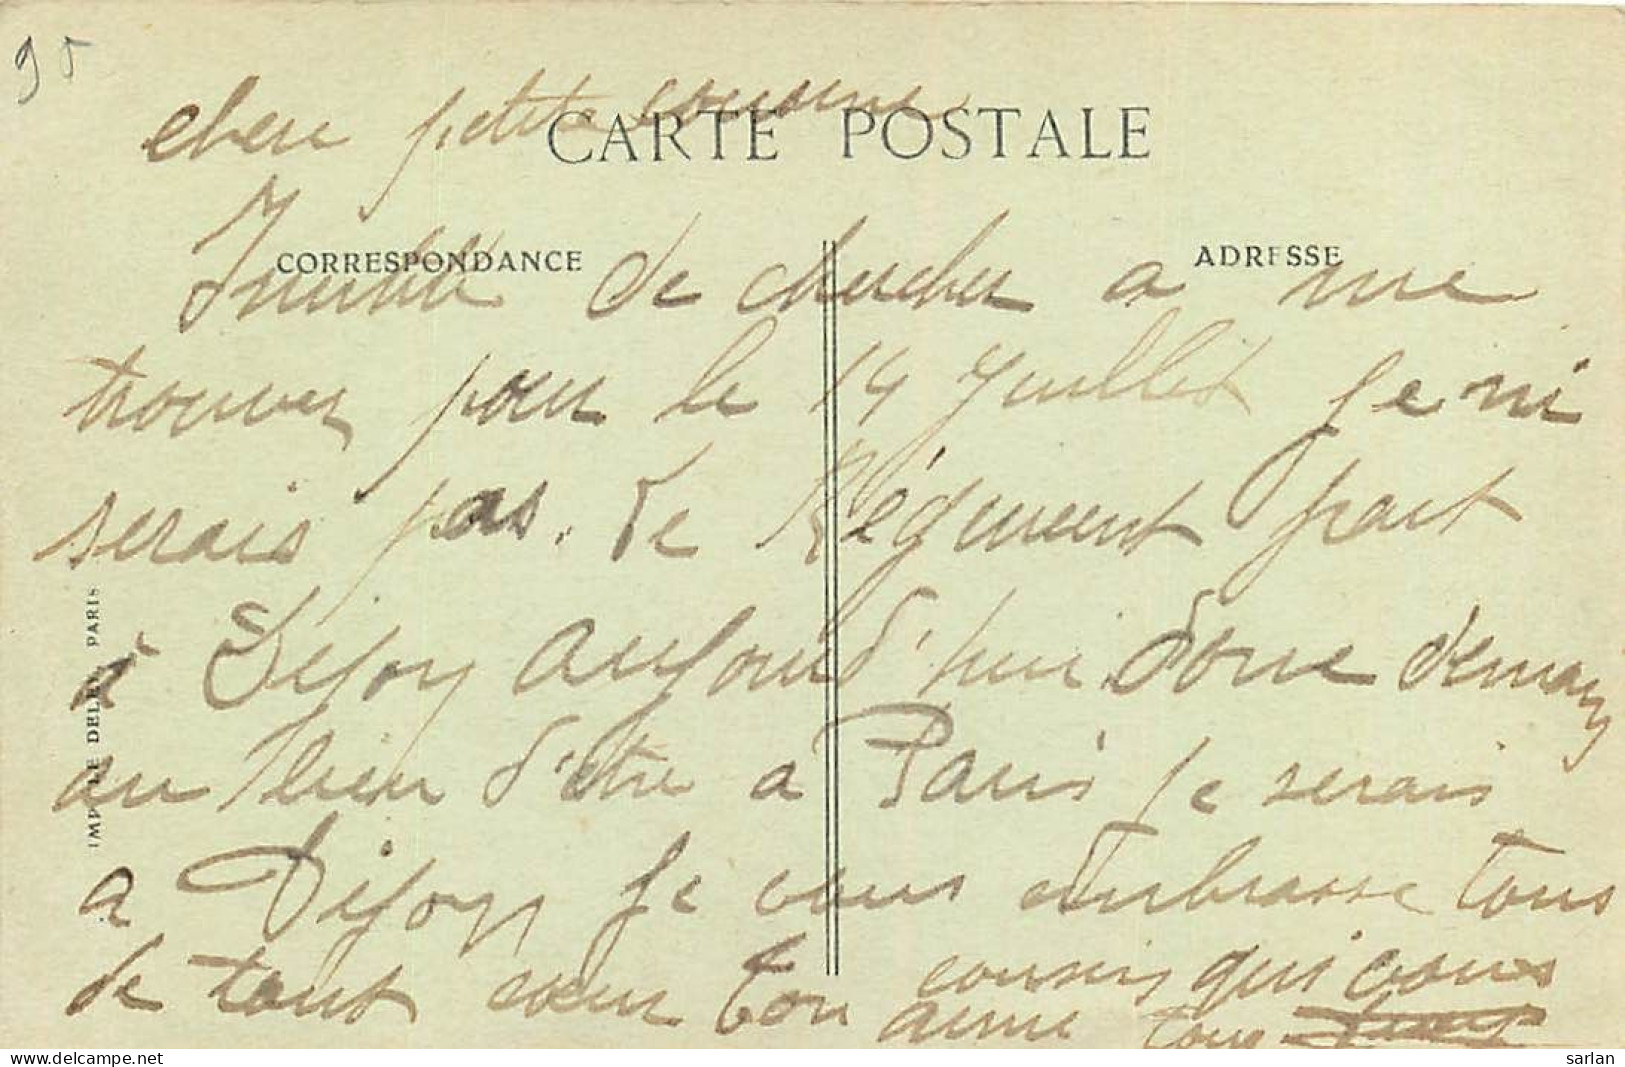 95
chere petite cousine
CARTE POSTALE
CORRESPONDANCE
ADRESSE
Inutile de chercher a me
trouver pour le 14 Juillet je ni
serais pas. Le Régiment part
à Dijon aujourd'hui donc demain
au lieu d'être à Paris je serais
a Dijon je vous embrasse tous
de tout cœur ton cousin qui vous
aime tous
IMP LE DELEY PARIS
sarlan